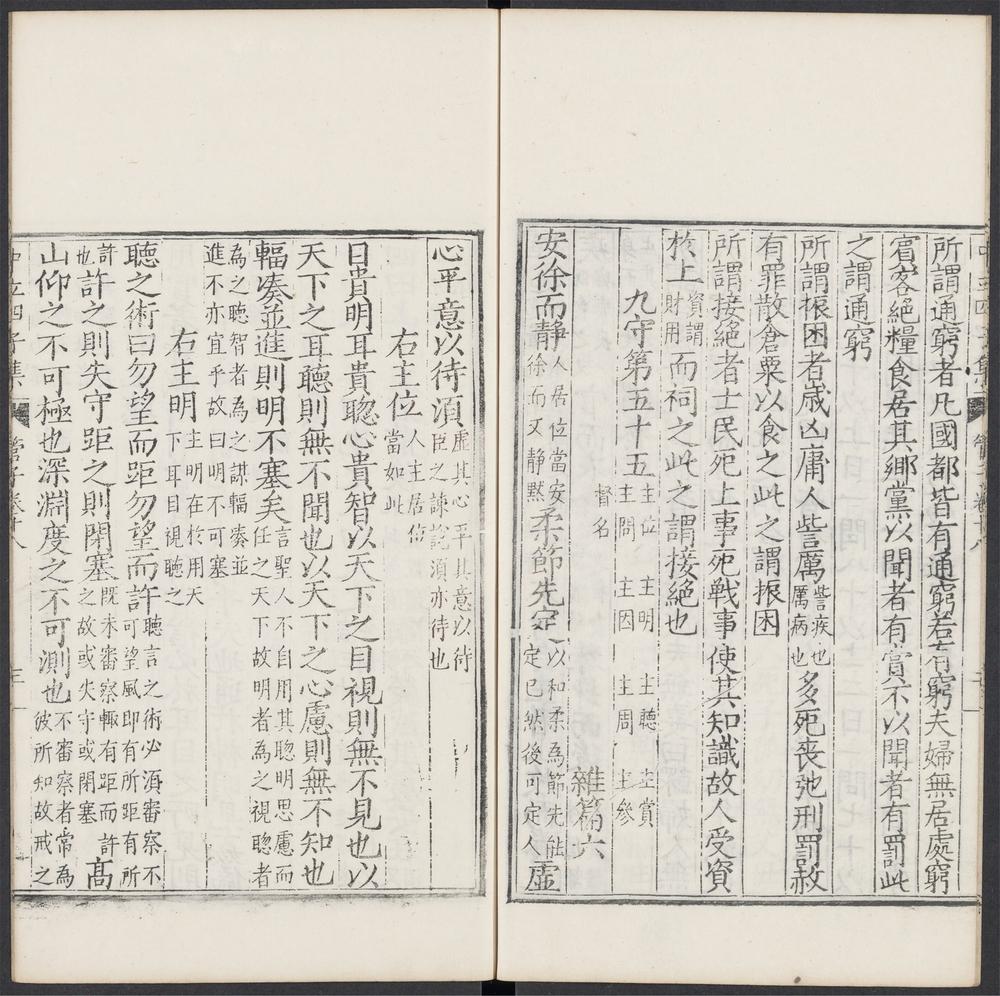 所謂通窮者凡國都皆有通窮若有窮夫婦無居處窮
賓客絕糧食居其鄉黨以聞者有賞不以聞者有罰此
之謂通窮
所謂振困者歲凶庸人訾厲訾疾也厲病也多死喪弛刑罰赦
有罪散倉粟以食之此之謂振困
所謂接絕者士民死上事死戰事使其知識故人受資
於上資謂財用而祠之此之謂接絕也
九守第五十五 主位 主明 主聽 主賞 主問 主因 主周 主參 督名 雜篇六
安徐而靜人居位當安徐而又靜默柔節先定以和柔為節先能定已然後可定人虛
心平意以待須虛其心平其意以待臣之諫說須亦待也
右主位人主居位當如此
目貴明耳貴聦心貴智以天下之目視則無不見也以
天下之耳聽則無不聞也以天下之心慮則無不知也
輻湊並進則明不塞矣言聖人不自用其聦明思慮而任之天下故明者為之視聦者
為之聽智者為之謀輻湊並進不亦宜乎故曰明不可塞
右主明主明在於用天下耳目視聽之
聽之術曰勿望而距勿望而許聽言之術必須審察不可望風即有所距有所
許也許之則失守距之則閉塞既未審察輒有距而許之故或失守或閉塞高
山仰之不可極也深淵度之不可測也不審察者常為彼所知故戒之
中立四子集 管子卷十八